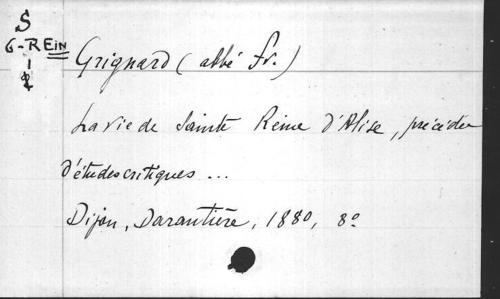 S
G-REin
1
Grignard (abbé Fr.)
La vie de Sainte Reine d'Alise, précédée
d'études critiques ...
Dijon, Darantière, 1880, 8º